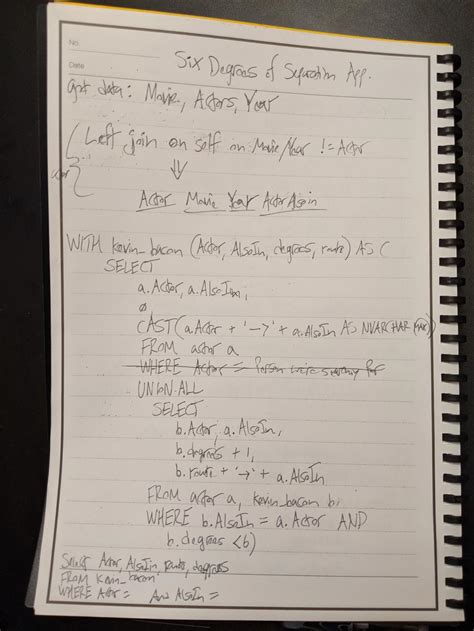 No.
Date
Six Degrees of Separation App.
get data: Movie, Actors, Year
Left join on self on Movie/Year != Actor
⇓
Actor Movie Year ActorAlsoin
WITH kevin_bacon (Actor, AlsoIn, degrees, route) AS (
SELECT
a.Actor, a.AlsoIn,
0
CAST(a.Actor + '->' + a.AlsoIn AS NVARCHAR(MAX))
FROM actor a
WHERE Actor = Person we're searching for
UNION ALL
SELECT
b.Actor, a.AlsoIn,
b.degrees + 1,
b.route + '->' + a.AlsoIn
FROM actor a, kevin_bacon b
WHERE b.AlsoIn = a.Actor AND
b.degrees <6)
Select Actor, AlsoIn, route, degrees
FROM kevin_bacon
WHERE Actor = And AlsoIn =